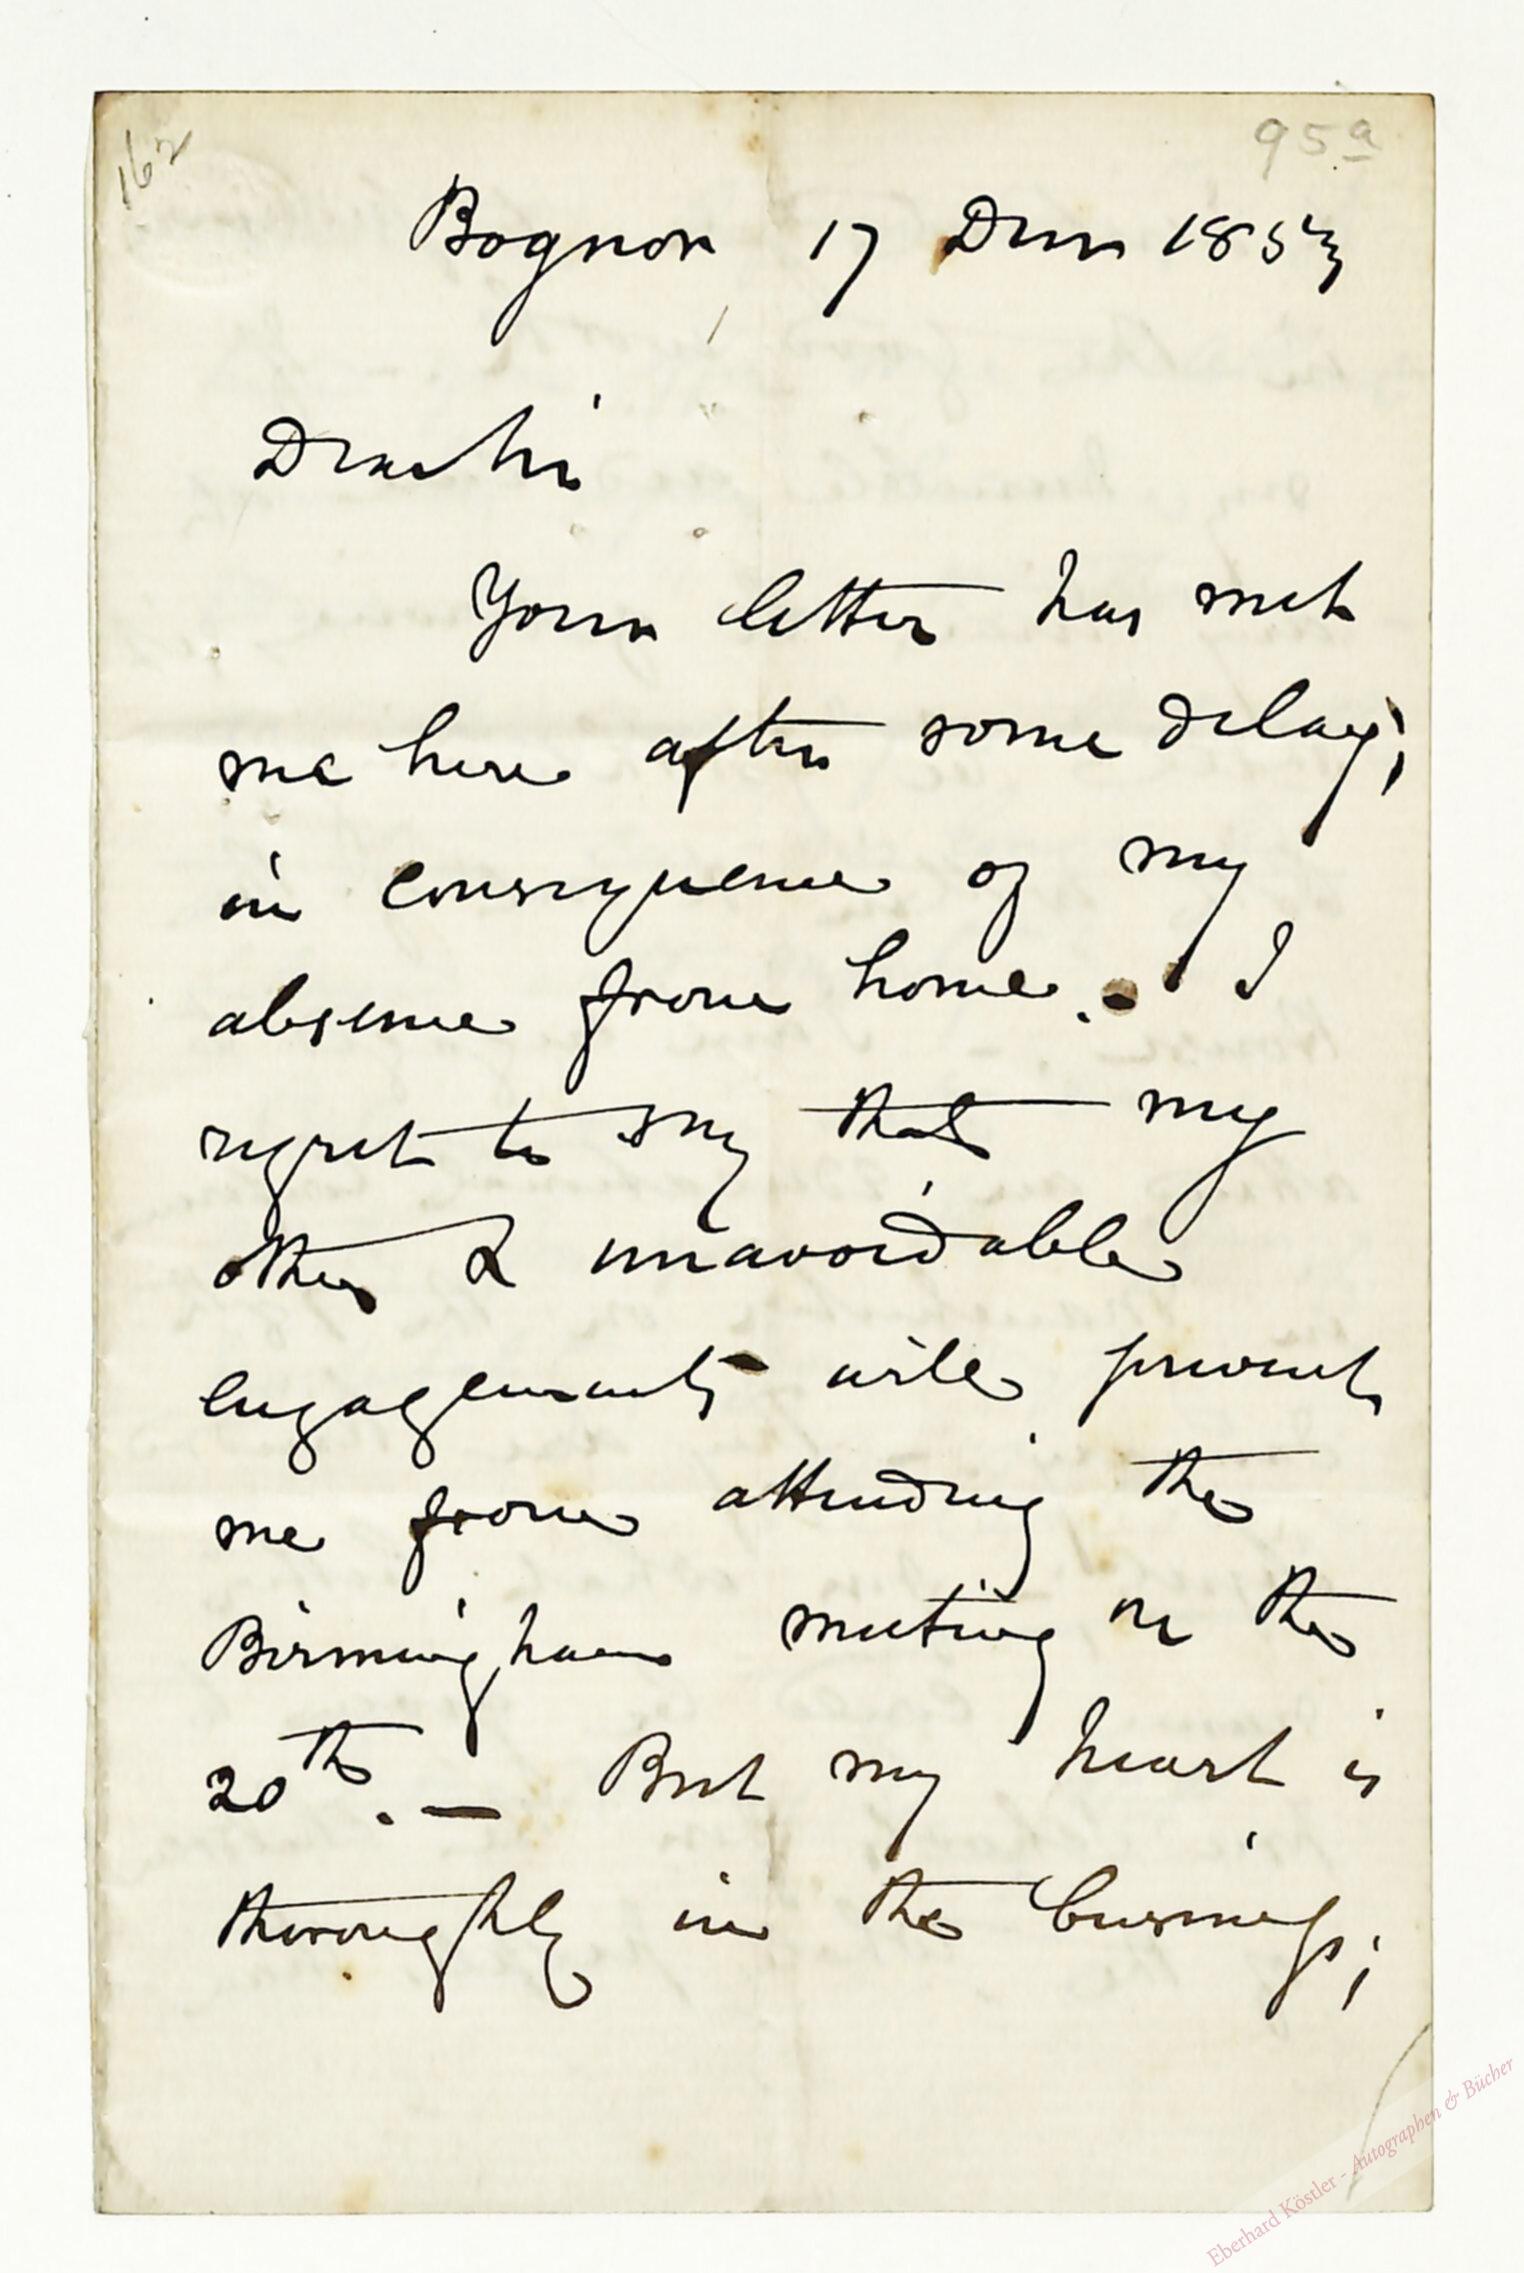 162
95a
Bognor 17 Decr 1853
Dear Sir
Your letter has met
me here after some delay,
in consequence of my
absence from home. - I
regret to say that my
other & unavoidable
engagements will prevent
me from attending the
Birmingham meeting on the
20th. — But my heart is
thoroughly in the business;
Eberhard Köstler - Autographen & Bücher